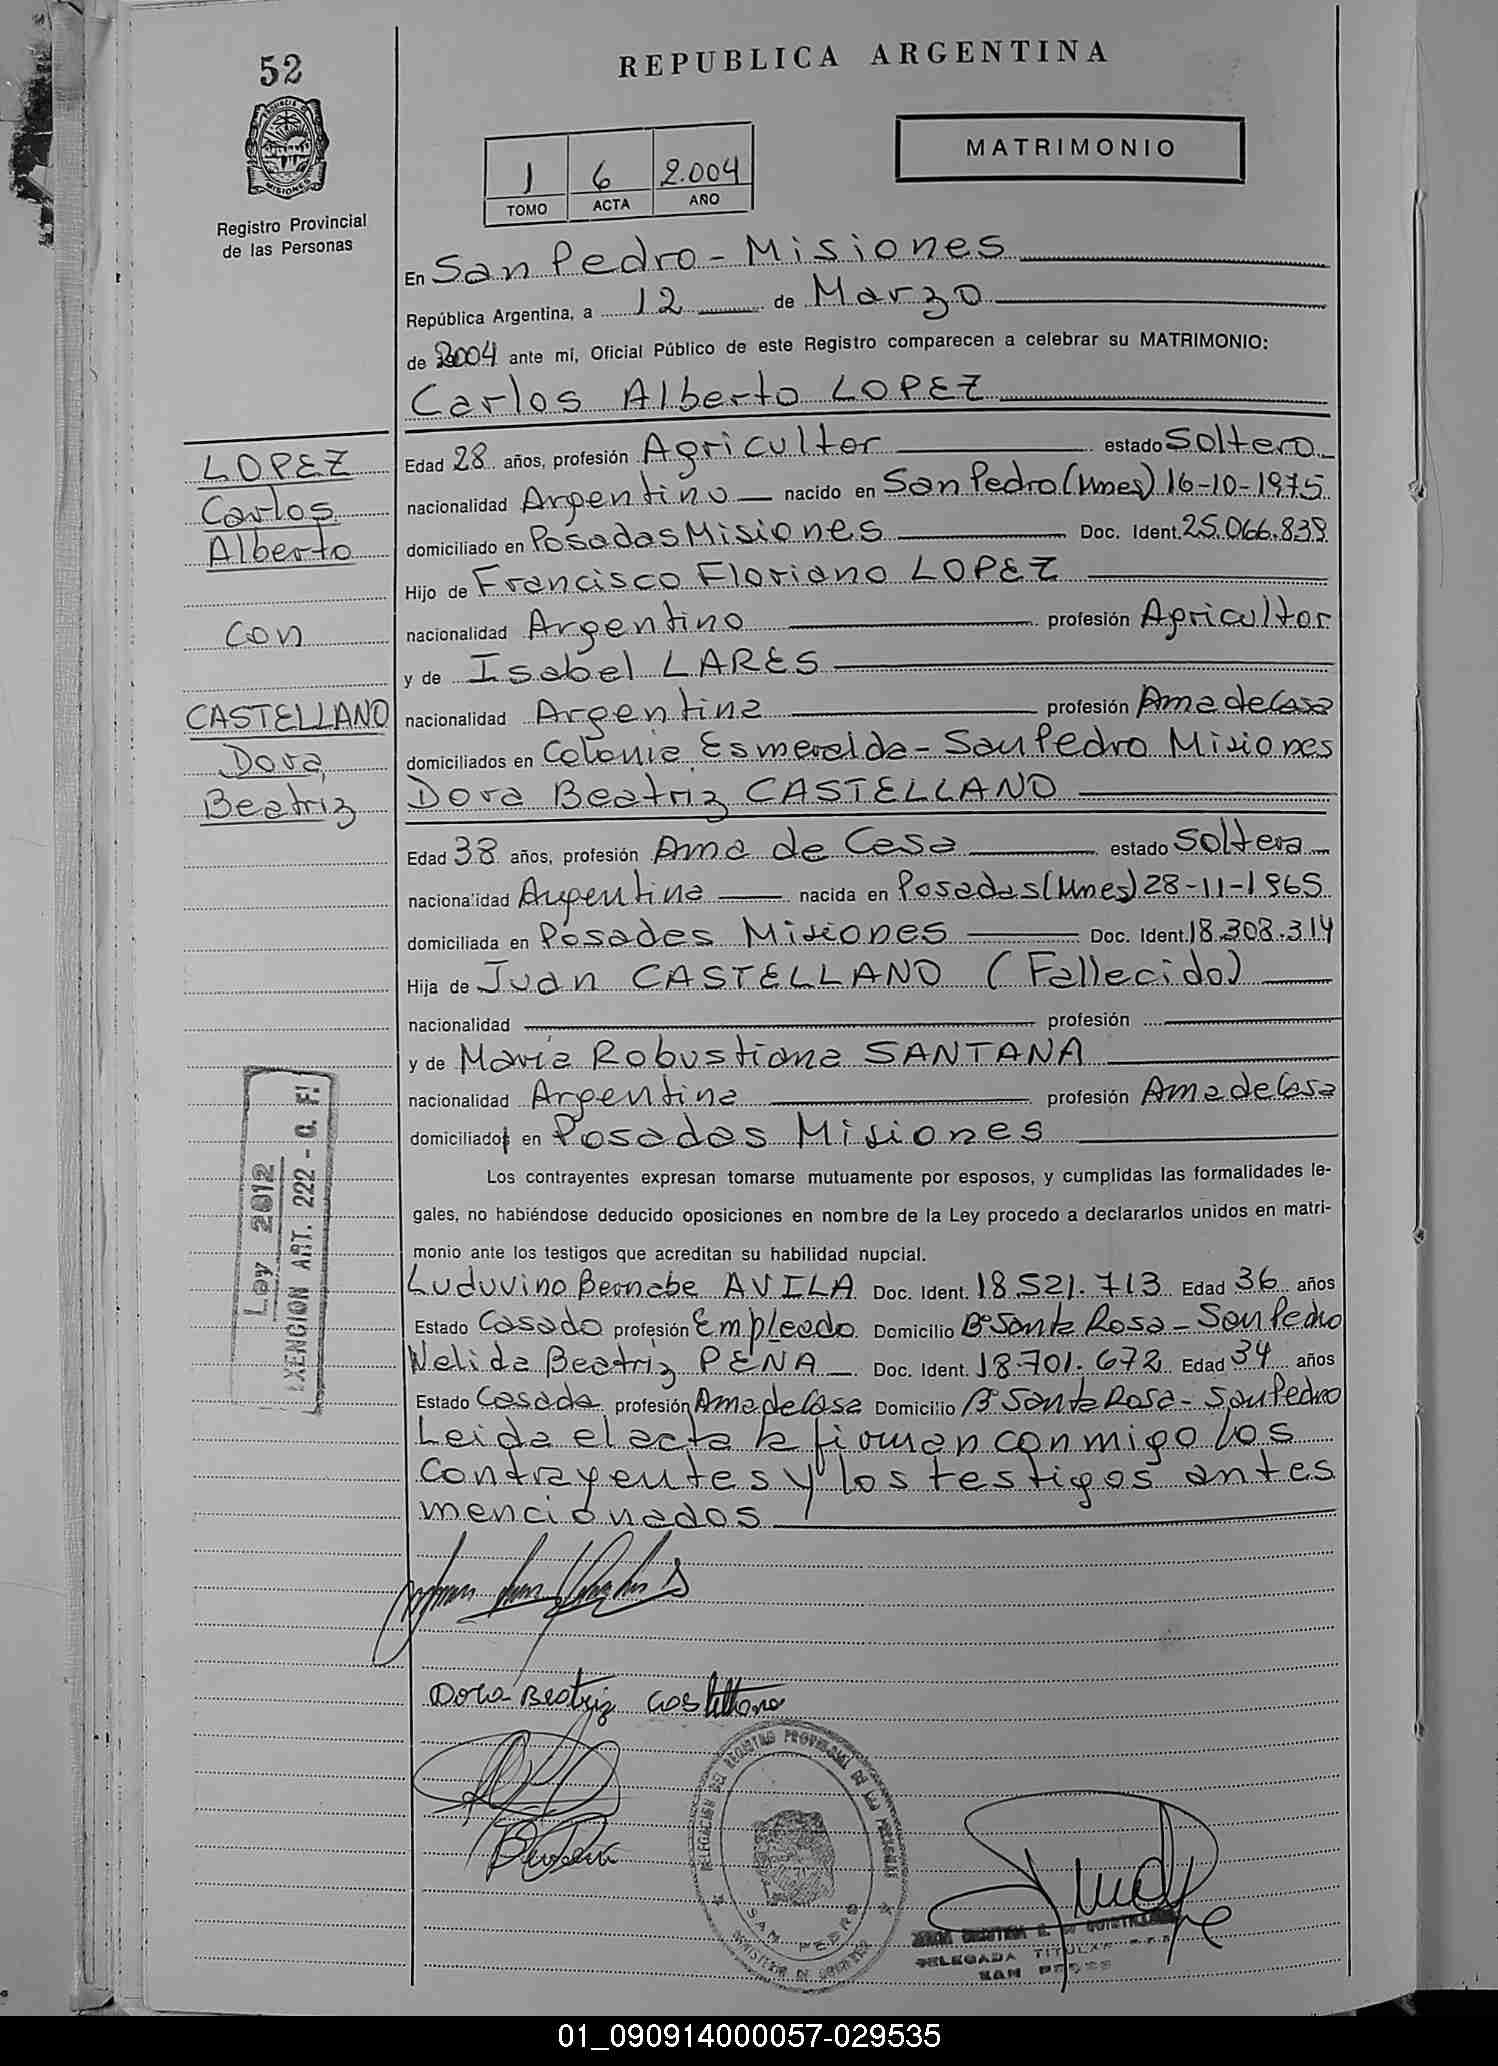 52
REPUBLICA ARGENTINA
PROVINCIA DE MISIONES
MATRIMONIO
1 6 2.004
TOMO ACTA AÑO
Registro Provincial
de las Personas
En San Pedro - Misiones
República Argentina, a 12 de Marzo
de 2004 ante mí, Oficial Público de este Registro comparecen a celebrar su MATRIMONIO:
Carlos Alberto LOPEZ
LOPEZ
Carlos
Alberto
con
CASTELLANO
Dora
Beatriz
Edad 28 años, profesión Agricultor estado Soltero
nacionalidad Argentino nacido en San Pedro (Mnes) 16-10-1975
domiciliado en Posadas Misiones Doc. Ident. 25.066.839
Hijo de Francisco Floriano LOPEZ
nacionalidad Argentino profesión Agricultor
y de Isabel LARES
nacionalidad Argentina profesión Ama de Casa
domiciliados en Colonia Esmeralda - San Pedro Misiones
Dora Beatriz CASTELLANO
Edad 38 años, profesión Ama de Casa estado Soltera
nacionalidad Argentina nacida en Posadas (Mnes) 28-11-1965
domiciliada en Posadas Misiones Doc. Ident. 18.308.314
Hija de Juan CASTELLANO (Fallecido)
nacionalidad profesión
y de Maria Robustiana SANTANA
nacionalidad Argentina profesión Ama de Casa
domiciliados en Posadas Misiones
Ley 2012
EXENCION ART. 222 - C. F!
Los contrayentes expresan tomarse mutuamente por esposos, y cumplidas las formalidades le-
gales, no habiéndose deducido oposiciones en nombre de la Ley procedo a declararlos unidos en matri-
monio ante los testigos que acreditan su habilidad nupcial.
Luduvino Bernabe AVILA Doc. Ident. 18.521.713 Edad 36 años
Estado Casado profesión Empleado Domicilio Bº Santa Rosa - San Pedro
Nelida Beatriz PENA Doc. Ident. 18.701.672 Edad 34 años
Estado Casada profesión Ama de Casa Domicilio Bº Santa Rosa - San Pedro
Leida el acta la firman conmigo los
contrayentes y los testigos antes
mencionados
Dora Beatriz Castellano
DELEGACION DEL REGISTRO PROVINCIAL DE LAS PERSONAS
SAN PEDRO
MINISTERIO DE GOBIERNO
DELEGADA TITULAR
SAN PEDRO
01_090914000057-029535